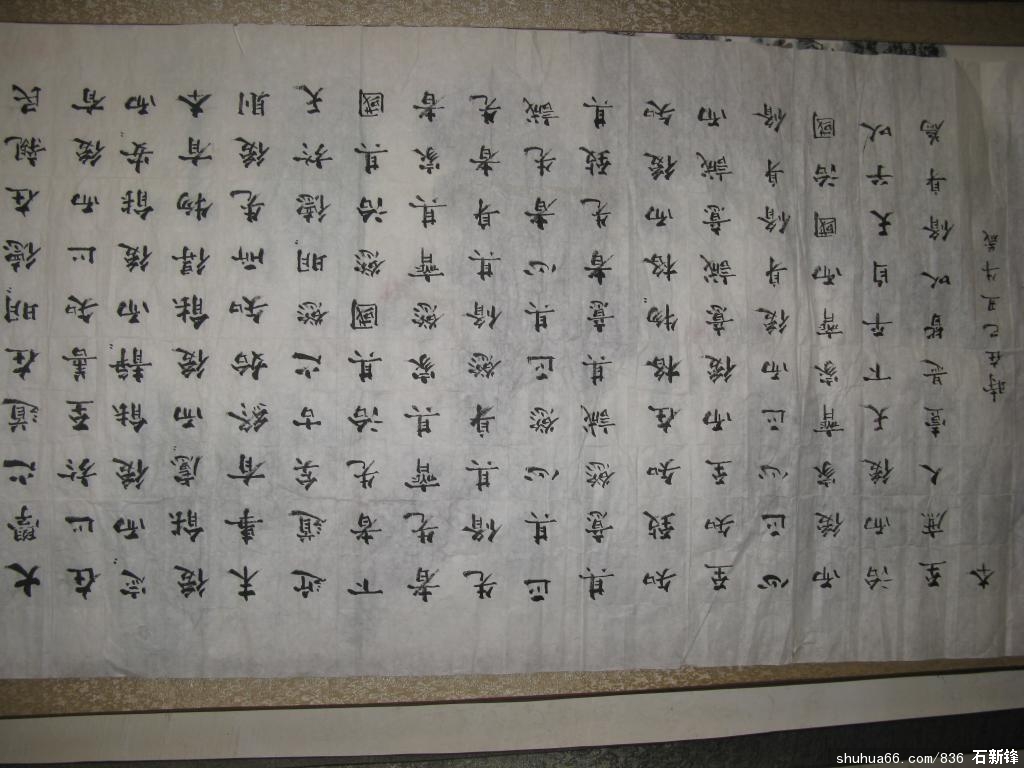 大學之道在明〃德在親民
在止於至善知止而後有
定〃而後能靜〃而後能安〃而
後能慮〃而後能得物有本
末事有終始知所先後則
近道矣古之慾明〃德於天
下者先治其國慾治其國
者先齊其家慾齊其家者
先脩其身慾脩其身者先
正其心慾正其心者先誠
其意慾誠其意者先致其
知致知在格物〃格而後知
至知至而後意誠意誠而
後心正心正而後身脩身脩
而後家齊家齊而國治國
治而後天下平自天子以
至庶人壹是皆以脩身為
本
時在己丑牛歲
shuhua66.com/836 石新锋